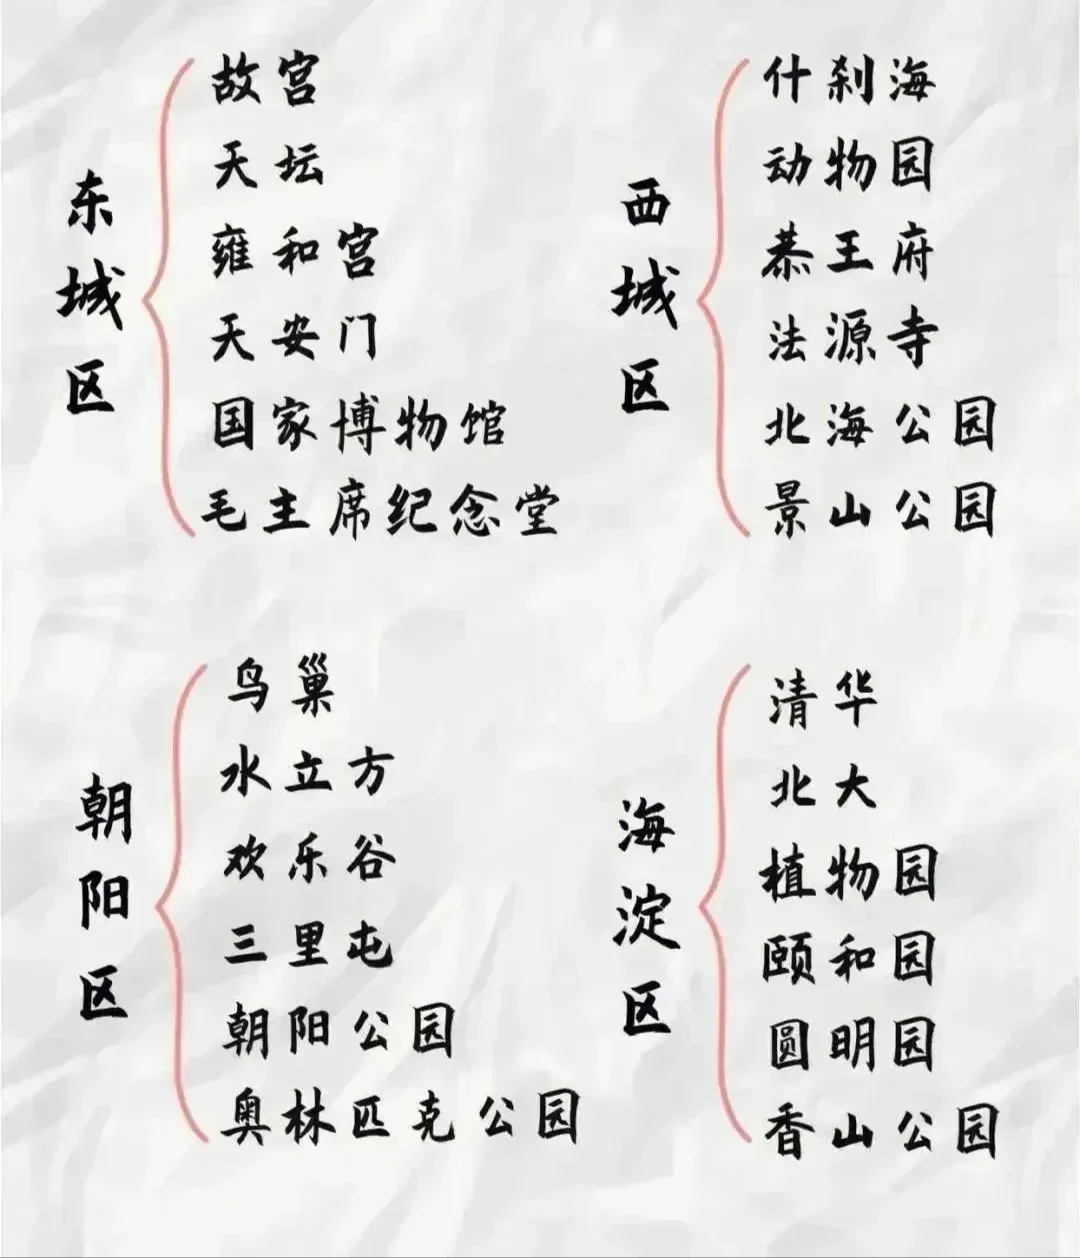 东城区
故宫
天坛
雍和宫
天安门
国家博物馆
毛主席纪念堂
西城区
什刹海
动物园
恭王府
法源寺
北海公园
景山公园
朝阳区
鸟巢
水立方
欢乐谷
三里屯
朝阳公园
奥林匹克公园
海淀区
清华
北大
植物园
颐和园
圆明园
香山公园